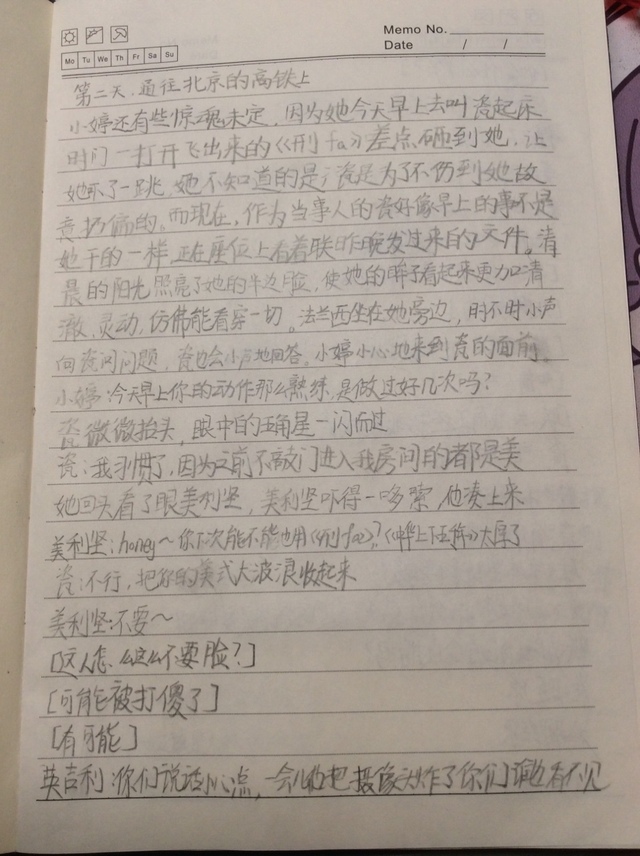 Memo No.
Mo Tu We Th Fr Sa Su
Date / /
第二天，通往北京的高铁上
小婷还有些惊魂未定，因为她今天早上去叫瓷起床
时门一打开飞出来的《刑fa》差点砸到她，让
她吓了一跳，她不知道的是，瓷是为了不伤到她故
意扔偏的。而现在，作为当事人的瓷好像早上的事不是
她干的一样，正在座位上看着联昨晚发过来的文件。清
晨的阳光照亮了她的半边脸，使她的眸子看起来更加清
澈，灵动，仿佛能看穿一切。法兰西坐在她旁边，时不时小声
向瓷问问题，瓷也会小声地回答。小婷小心地来到瓷的面前
小婷：今天早上你的动作那么熟练，是做过好几次吗？
瓷微微抬头，眼中的五角星一闪而过
瓷：我习惯了，因为之前不敲门进入我房间的都是美
她回头看了眼美利坚，美利坚吓得一哆嗦，他凑上来
美利坚：honey～你下次能不能也用《刑fa》？《中华上下五千年》太厚了
瓷：不行，把你的美式大波浪收起来
美利坚：不要～
[这人怎么这么不要脸？]
[可能被打傻了]
[有可能]
英吉利：你们说话小心点，一会儿他把摄像头炸了你们谁也看不见